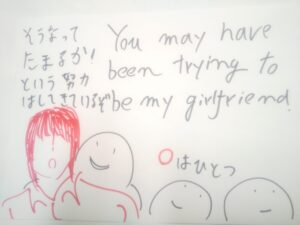 そうなって
たまるか!
という努力
はしてきているぞ
You may have
been trying to
be my girlfriend.
○はひとつ